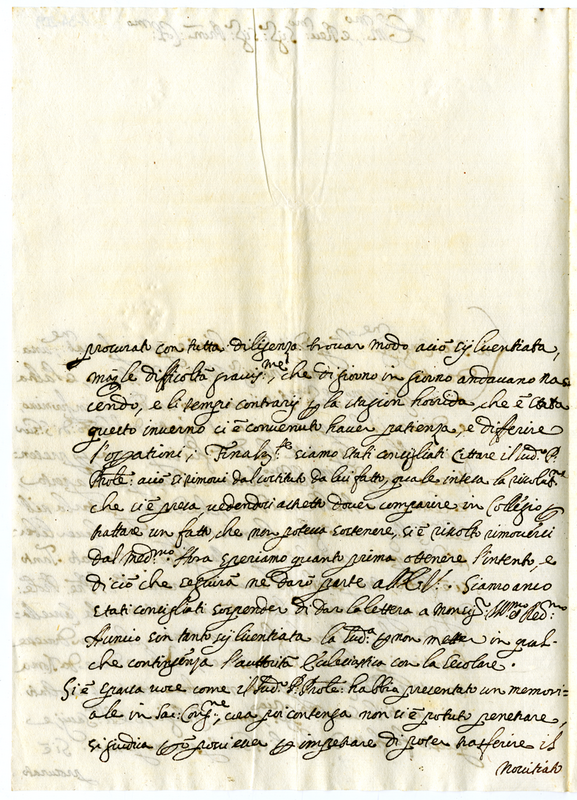 procurato con tutta diligenza trovar modo acciò sij licentiata,
mà p le difficoltà graviss.me, che di giorno in giorno andavano na=
cendo, e li tempi contrarij p la stagion horrida, che è stata
questo inverno ci è convenuto haver patienza, e differire
l'operationi; Finalm.te siamo stati consigliati citare il sud.o P.
Ptole: acciò si rimovi dal costituto da lui fatto, quale intesa la risolut.ne
che si è presa vedendosi astretto dover comparire in Collegio p
trattare un fatto, che non poteva sostenere, si è risolto rimoversi
dal med.mo. Hora speriamo quanto prima ottenere l'intento, e
di ciò che seguirà ne darò parte a V.S. Ill.: Siamo anco
stati consigliati sospender di dar la lettera a Monsig.r Ill.mo e Red.mo
Nuncio sin tanto sij licentiata la sud.a p non metter in qual=
che contingenza l'auttorità Eclesiastica con la secolare.
Si è sparsa voce come il sud.o P. Ptole: habbia presentato un memori=
ale in Sac: Cong.ne, cosa poi contenga non si è potuto penetrare,
si giudica però possi esser p impetrare di poter trasferire il
Novitiato